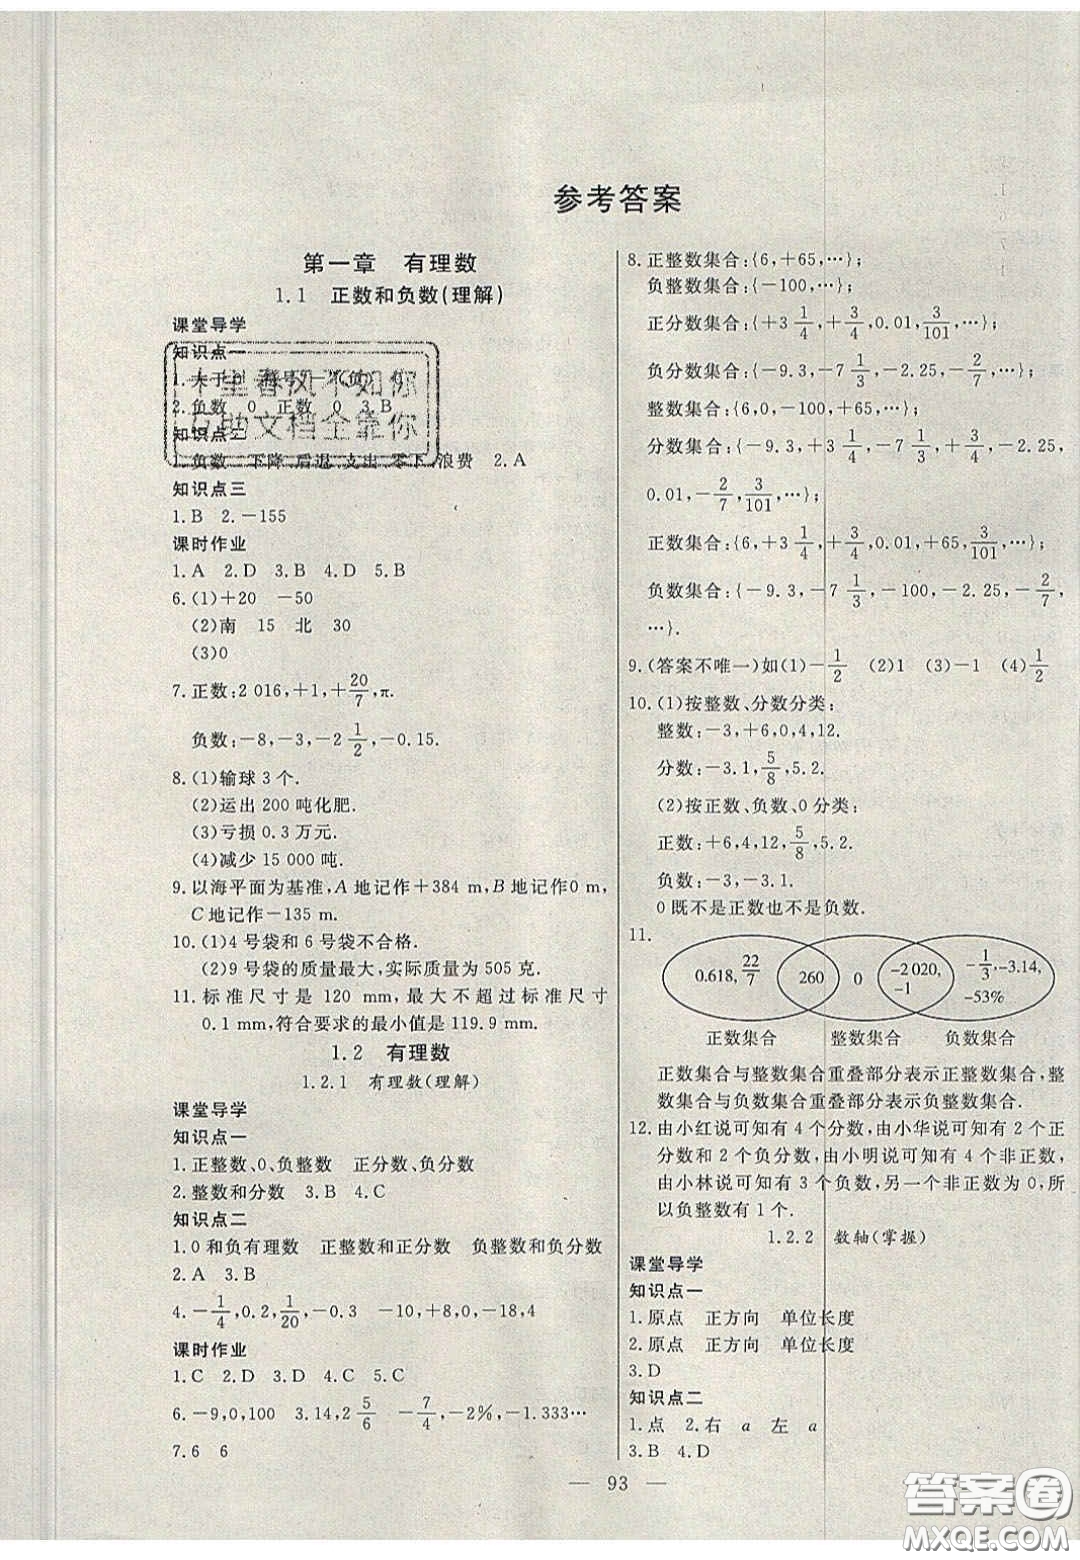 参考答案
第一章 有理数
1.1 正数和负数(理解)
课堂导学
知识点一
2.负数 0 正数 0 3.B
十里春风不如你
互助文档全靠你
知识点二
1.负数 下降 后退 支出 零下 浪费 2.A
知识点三
1.B 2.-155
课时作业
1.A 2.D 3.B 4.D 5.B
6.(1)+20 -50
(2)南 15 北 30
(3)0
7.正数:2 016,+1,+20/7,π.
负数:-8,-3,-2 1/2,-0.15.
8.(1)输球 3 个.
(2)运出 200 吨化肥.
(3)亏损 0.3 万元.
(4)减少 15 000 吨.
9.以海平面为基准,A 地记作+384 m,B 地记作0 m,
C 地记作-135 m.
10.(1)4 号袋和 6 号袋不合格.
(2)9 号袋的质量最大,实际质量为 505 克.
11.标准尺寸是 120 mm,最大不超过标准尺寸
0.1 mm,符合要求的最小值是 119.9 mm.
1.2 有理数
1.2.1 有理数(理解)
课堂导学
知识点一
1.正整数、0、负整数 正分数、负分数
2.整数和分数 3.B 4.C
知识点二
1.0和负有理数 正整数和正分数 负整数和负分数
2.A 3.B
4.-1/4,0.2,1/20,-0.3 -10,+8,0,-18,4
课时作业
1.C 2.D 3.D 4.C 5.C
6.-9,0,100 3.14,2 5/6 -7/4,-2%,-1.333…
7.6 6
8.正整数集合:{6,+65,…};
负整数集合:{-100,…};
正分数集合:{+3 1/4,+3/4,0.01,3/101,…};
负分数集合:{-9.3,-7 1/3,-2.25,-2/7,…};
整数集合:{6,0,-100,+65,…};
分数集合:{-9.3,+3 1/4,-7 1/3,+3/4,-2.25,
0.01,-2/7,3/101,…};
正数集合:{6,+3 1/4,+3/4,0.01,+65,3/101,…};
负数集合:{-9.3,-7 1/3,-100,-2.25,-2/7,
…}.
9.(答案不唯一)如(1)-1/2 (2)1 (3)-1 (4)1/2
10.(1)按整数、分数分类:
整数:-3,+6,0,4,12.
分数:-3.1,5/8,5.2.
(2)按正数、负数、0 分类:
正数:+6,4,12,5/8,5.2.
负数:-3,-3.1.
0 既不是正数也不是负数.
11.
0.618,22/7 260 0 -2 020,-1 -1/3,-3.14,-53%
正数集合 整数集合 负数集合
正数集合与整数集合重叠部分表示正整数集合,整
数集合与负数集合重叠部分表示负整数集合.
12.由小红说可知有 4 个分数,由小华说可知有 2 个正
分数和 2 个负分数,由小明说可知有 4 个非正数,
由小林说可知有 3 个负数,另一个非正数为 0,所
以负整数有 1 个.
1.2.2 数轴(掌握)
课堂导学
知识点一
1.原点 正方向 单位长度
2.原点 正方向 单位长度
3.D
知识点二
1.点 2.右 a 左 a
3.B 4.D
— 93 —
答案圈
MXQE.COM